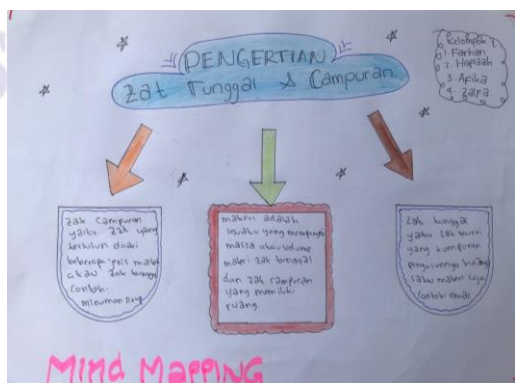 PENGERTIAN
Zat Tunggal & Campuran
Kelompok
1. Farhan
2. Hapzah
3. Apika
4. Zalpa
Zat Campuran
yaitu zat yang
beberapa jenis materi
atau zat tunggal
contoh:
Minuman
materi adalah
sesuatu yang mempunyai
massa atau volume.
materi zat tunggal
dan zat campuran
yang memiliki
ruang.
Zat tunggal
yaitu zat murni
yang komponen
satu materi saja
contoh: emas
Mind Mapping